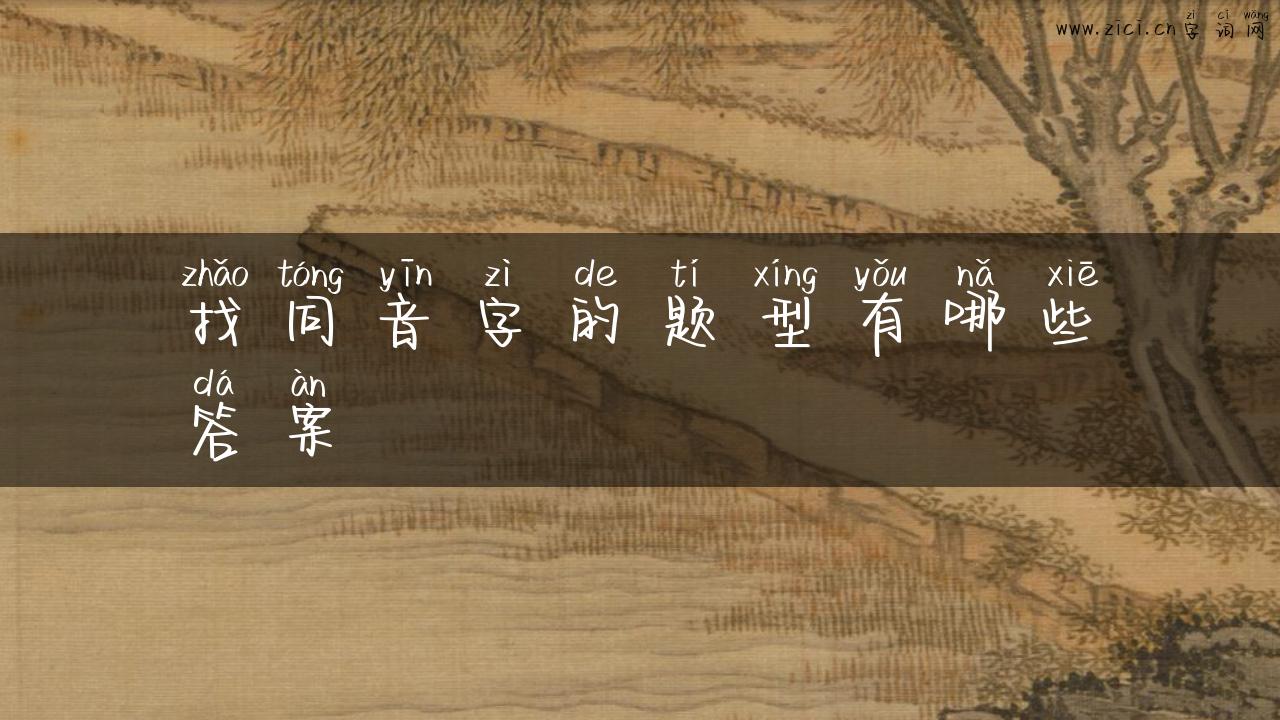 zì cī wǎng
www.zici.cn字词网
zhǎo tóng yīn zì de tí xíng yǒu nǎ xiē
找同音字的题型有哪些
dá àn
答案